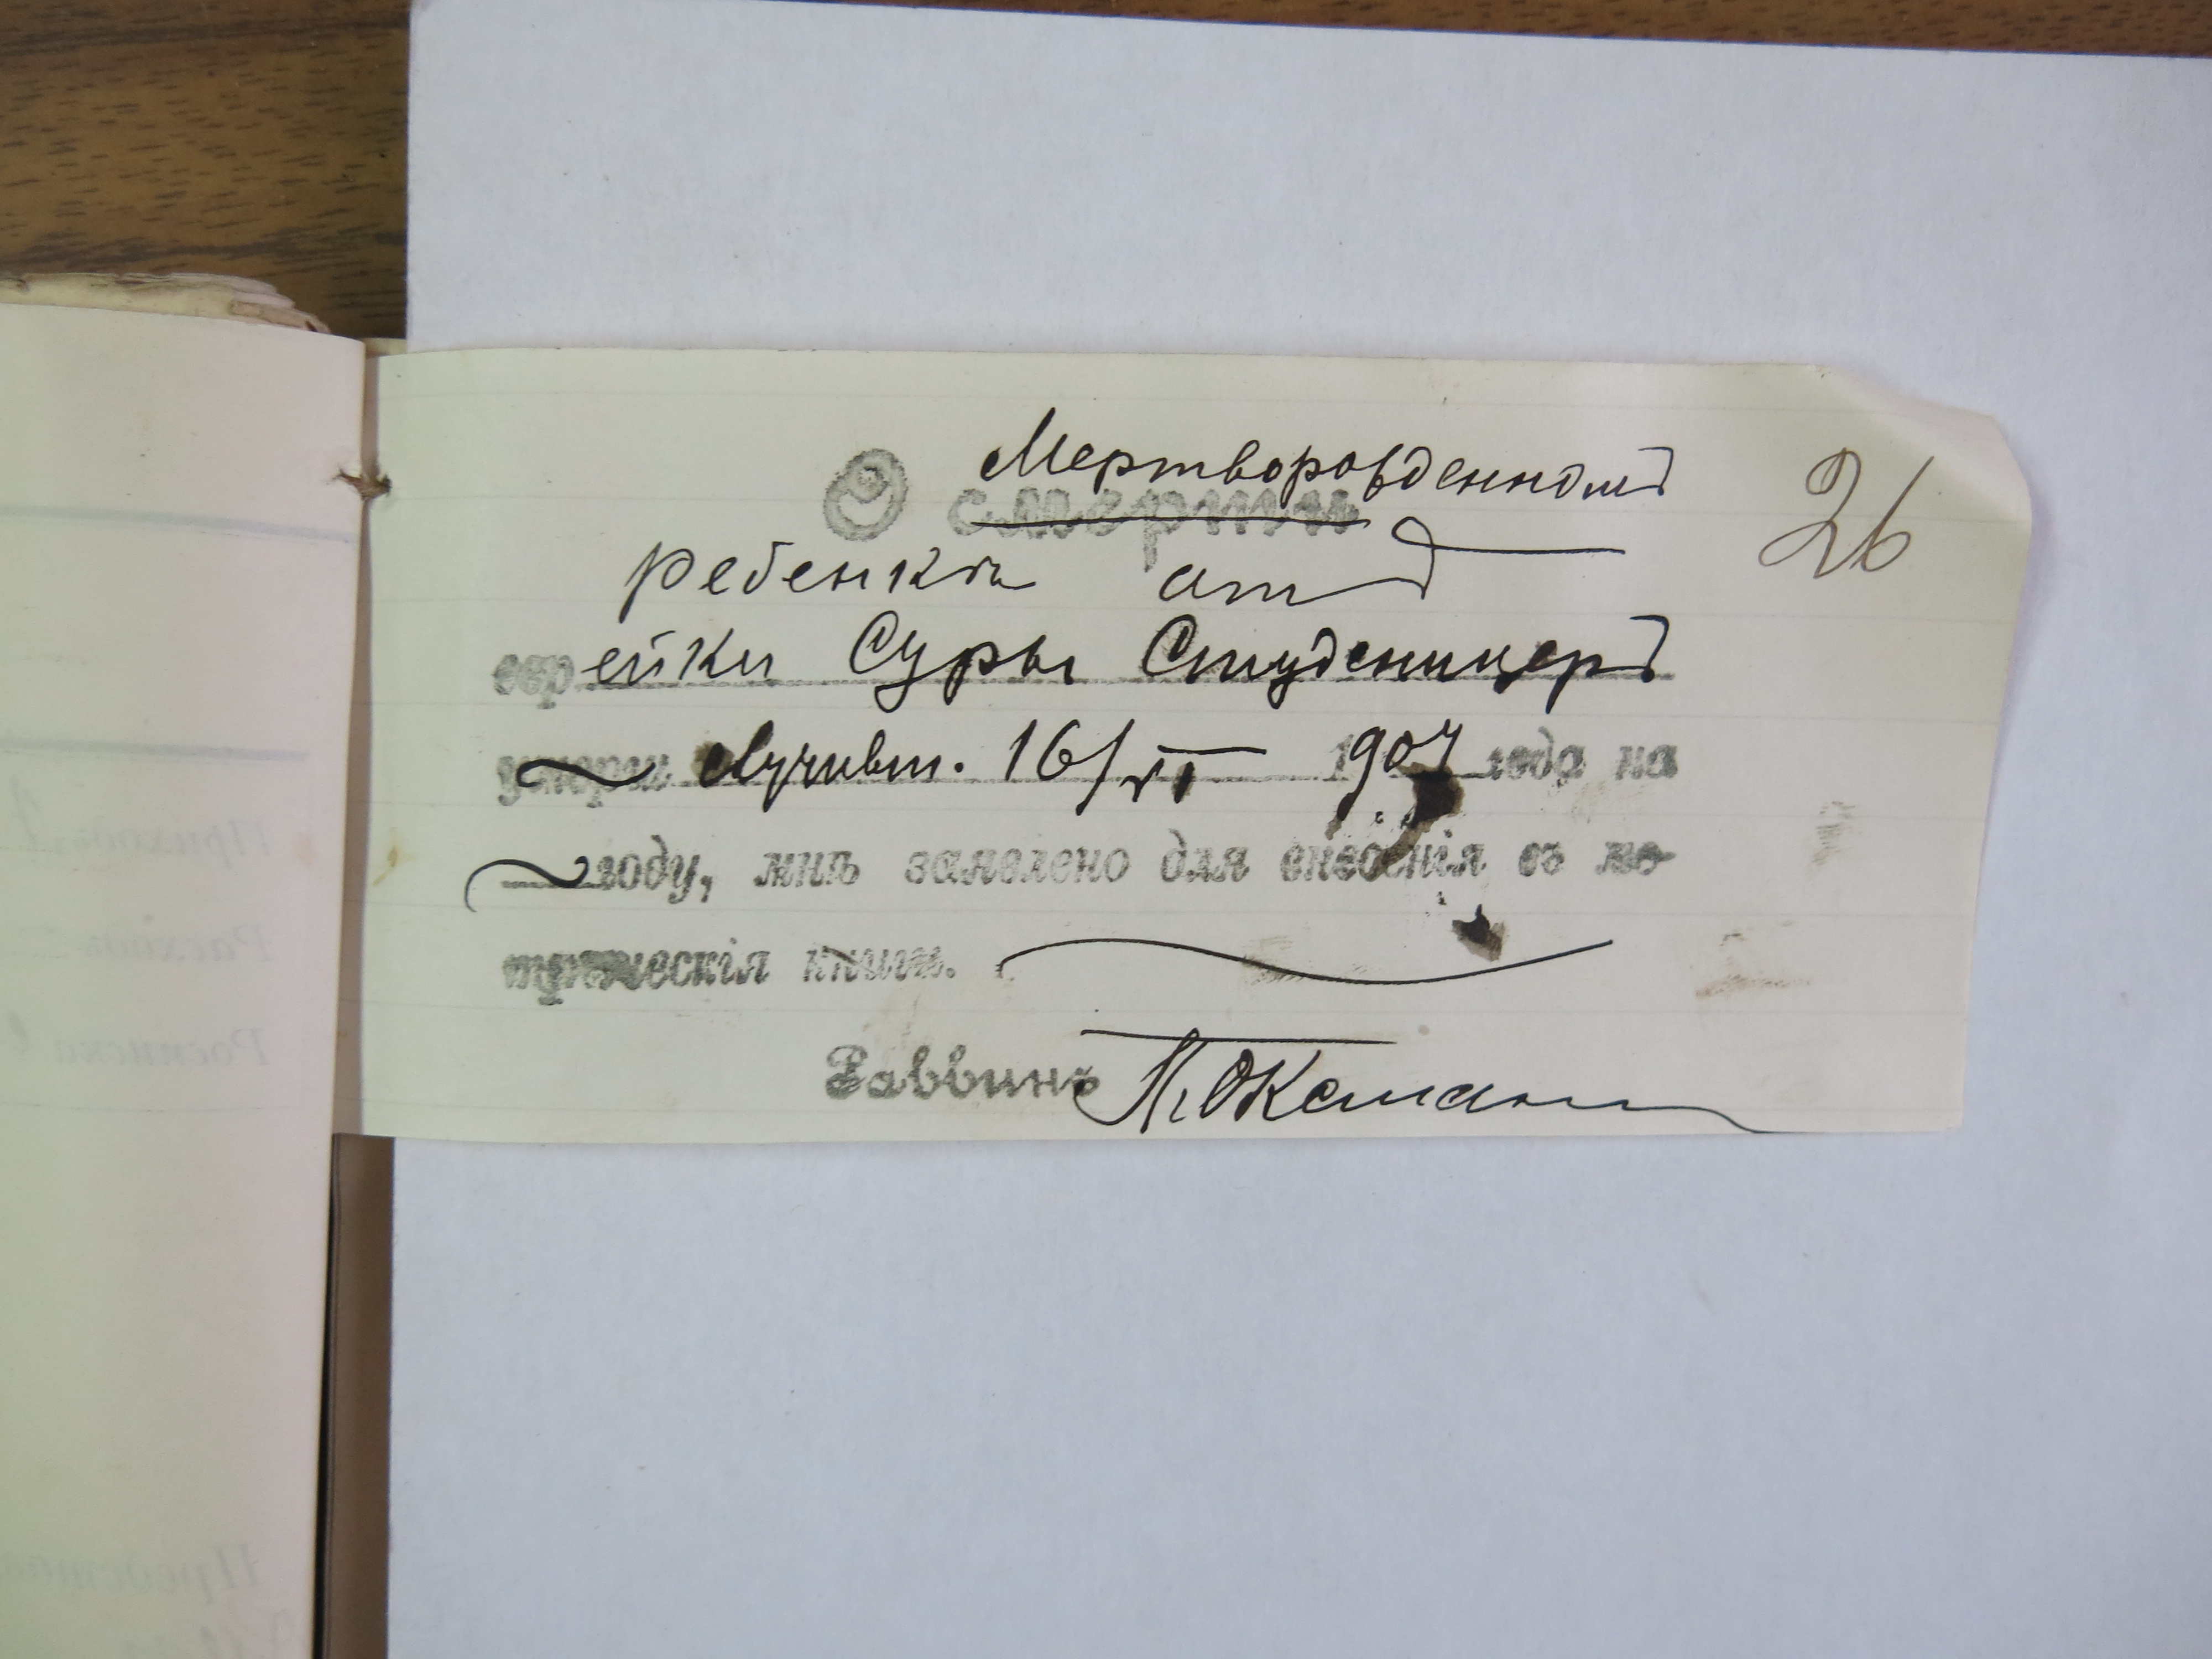 26
Мертворожденномъ
О смерти
ребенкѣ отъ
еврейки Суры Студеницеръ
умерш случивш. 16/VI 1907 года на
году, мнѣ заявлено для внесенія въ ме-
трическія книги.
Раввинъ Л. Оксман